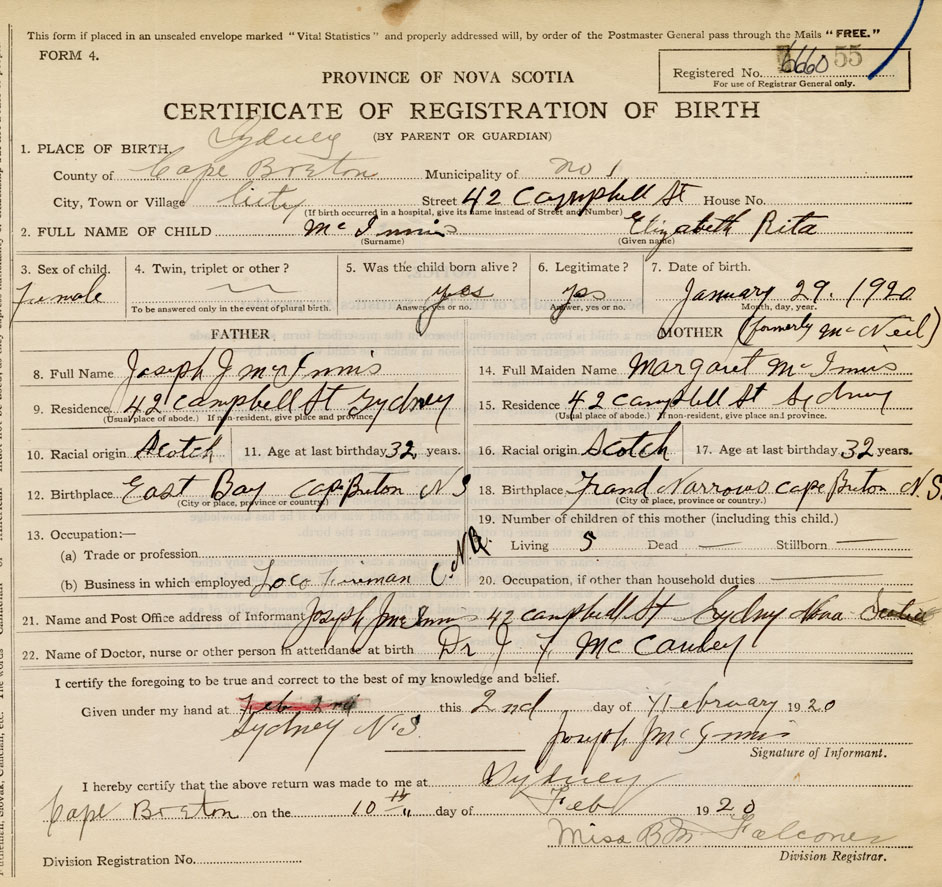 This form if placed in an unsealed envelope marked "Vital Statistics" and properly addressed will, by order of the Postmaster General pass through the Mails "FREE."
FORM 4.
Registered No. 6660 55
For use of Registrar General only.
PROVINCE OF NOVA SCOTIA
CERTIFICATE OF REGISTRATION OF BIRTH
(BY PARENT OR GUARDIAN)
1. PLACE OF BIRTH. Sydney
County of Cape Breton Municipality of no 1
City, Town or Village City Street 42 Campbell St House No.
(If birth occurred in a hospital, give its name instead of Street and Number)
2. FULL NAME OF CHILD McInnis Elizabeth Rita
(Surname) (Given name)
3. Sex of child. 4. Twin, triplet or other? 5. Was the child born alive? 6. Legitimate? 7. Date of birth.
Female yes yes January 29. 1920
To be answered only in the event of plural birth. Answer, yes or no. Answer, yes or no. Month, day, year.
FATHER MOTHER (formerly McNeil)
8. Full Name Joseph J McInnis 14. Full Maiden Name Margaret McInnis
9. Residence 42 Campbell St Sydney 15. Residence 42 Campbell St Sydney
(Usual place of abode.) If non-resident, give place and province. (Usual place of abode.) If non-resident, give place and province.
10. Racial origin Scotch 11. Age at last birthday 32 years. 16. Racial origin Scotch 17. Age at last birthday 32 years.
12. Birthplace East Bay Cape Breton N S 18. Birthplace Grand Narrows Cape Breton N.S.
(City or place, province or country.) (City or place, province or country.)
19. Number of children of this mother (including this child.)
13. Occupation:—
Living 5 Dead — Stillborn —
(a) Trade or profession
(b) Business in which employed Loco Fireman C.N.R. 20. Occupation, if other than household duties
21. Name and Post Office address of Informant Joseph J McInnis 42 Campbell St Sydney Nova Scotia
22. Name of Doctor, nurse or other person in attendance at birth Dr J F McCauley
I certify the foregoing to be true and correct to the best of my knowledge and belief.
Given under my hand at Feb 2nd this 2nd day of February 1920
Sydney N.S Joseph J McInnis
Signature of Informant.
I hereby certify that the above return was made to me at Sydney
Cape Breton on the 10th day of Feb 1920
Miss B M Falconer
Division Registrar.
Division Registration No.